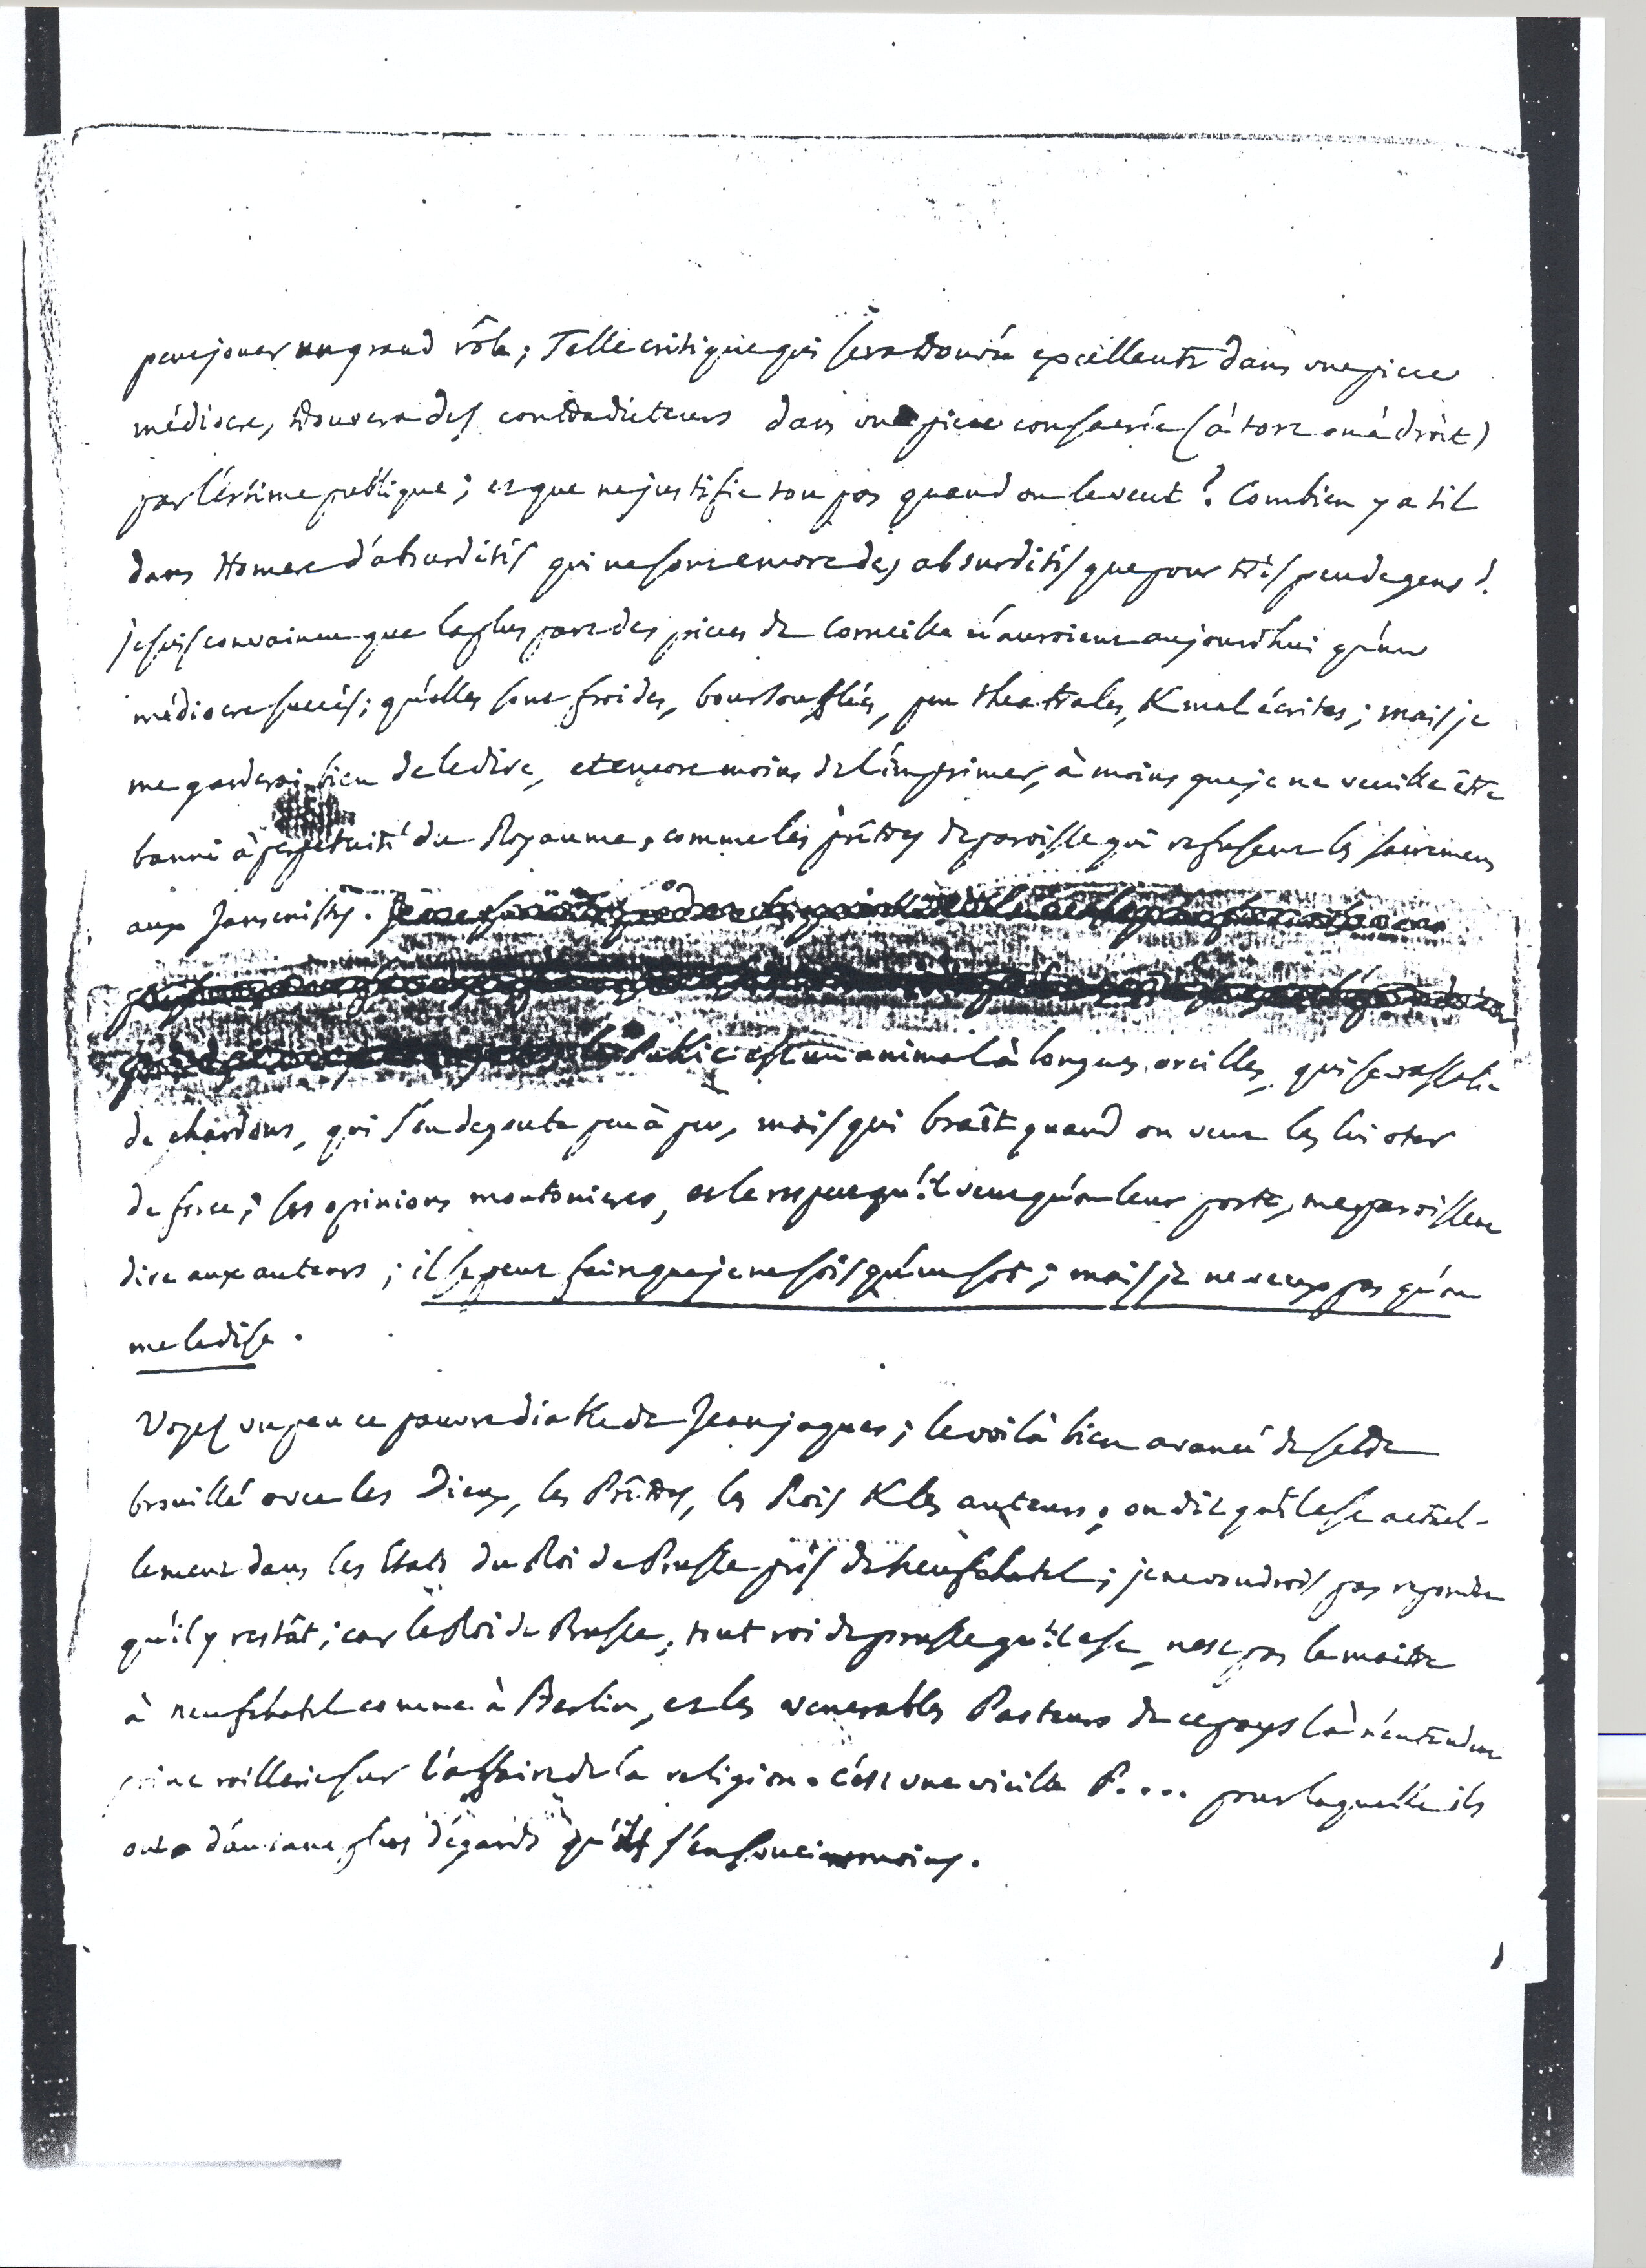 peut jouer un grand rôle; Telle critique qui sera trouvée excellente dans une piece
médiocre, trouvera des contradicteurs dans une piece consacrée (à tort ou à droit)
par l'éstime publique; et que ne justifie t'on pas quand on le veut? Combien y a til
dans Homere d'absurdités qui ne sont encore des absurdités que pour très peu de gens?
je suis convaincu que la plus part des pieces de Corneille n'auroient aujourdhui qu'un
médiocre succès; qu'elles sont froides, boursouflées, peu theatrales, & mal écrites; mais je
me garderai bien de le dire, et encore moins de l'imprimer, à moins que je ne veuille être
banni à perpétuité du Royaume, comme les prêtres de paroisse qui refusent les sacremens
aux Jansenistes.
public est un animal à longues oreilles, qui se rassasie
de chardons, qui s'en degoute peu à peu, mais qui braît quand on veut les lui oter
de force; ses opinions moutonieres, et le respect qu'il veut qu'on leur porte, me paroissent
dire aux auteurs; il se peut faire que je ne sois qu'un sot; mais je ne veux pas qu'on
me le dise.
Voyez un peu ce pauvre diable de Jean jaques; le voilà bien avancé de s'etre
brouillé avec les Dieux, les Prêtres, les Rois & les auteurs; on dit qu'il est actuel-
lement dans les Etats du Roi de Prusse près de neufchatel; je ne voudrois pas repondre
qu'il y restât; car le Roi de Prusse, tout roi de prusse qu'il est, n'est pas le maitre
à neufchatel comme à Berlin, et les venerables Pasteurs de ce pays là n'entendent
point raillerie sur l'affaire de la religion. c'est une vieille P.... pour laquelle ils
ont d'autant plus d'égards qu'ils s'en soucient moins.